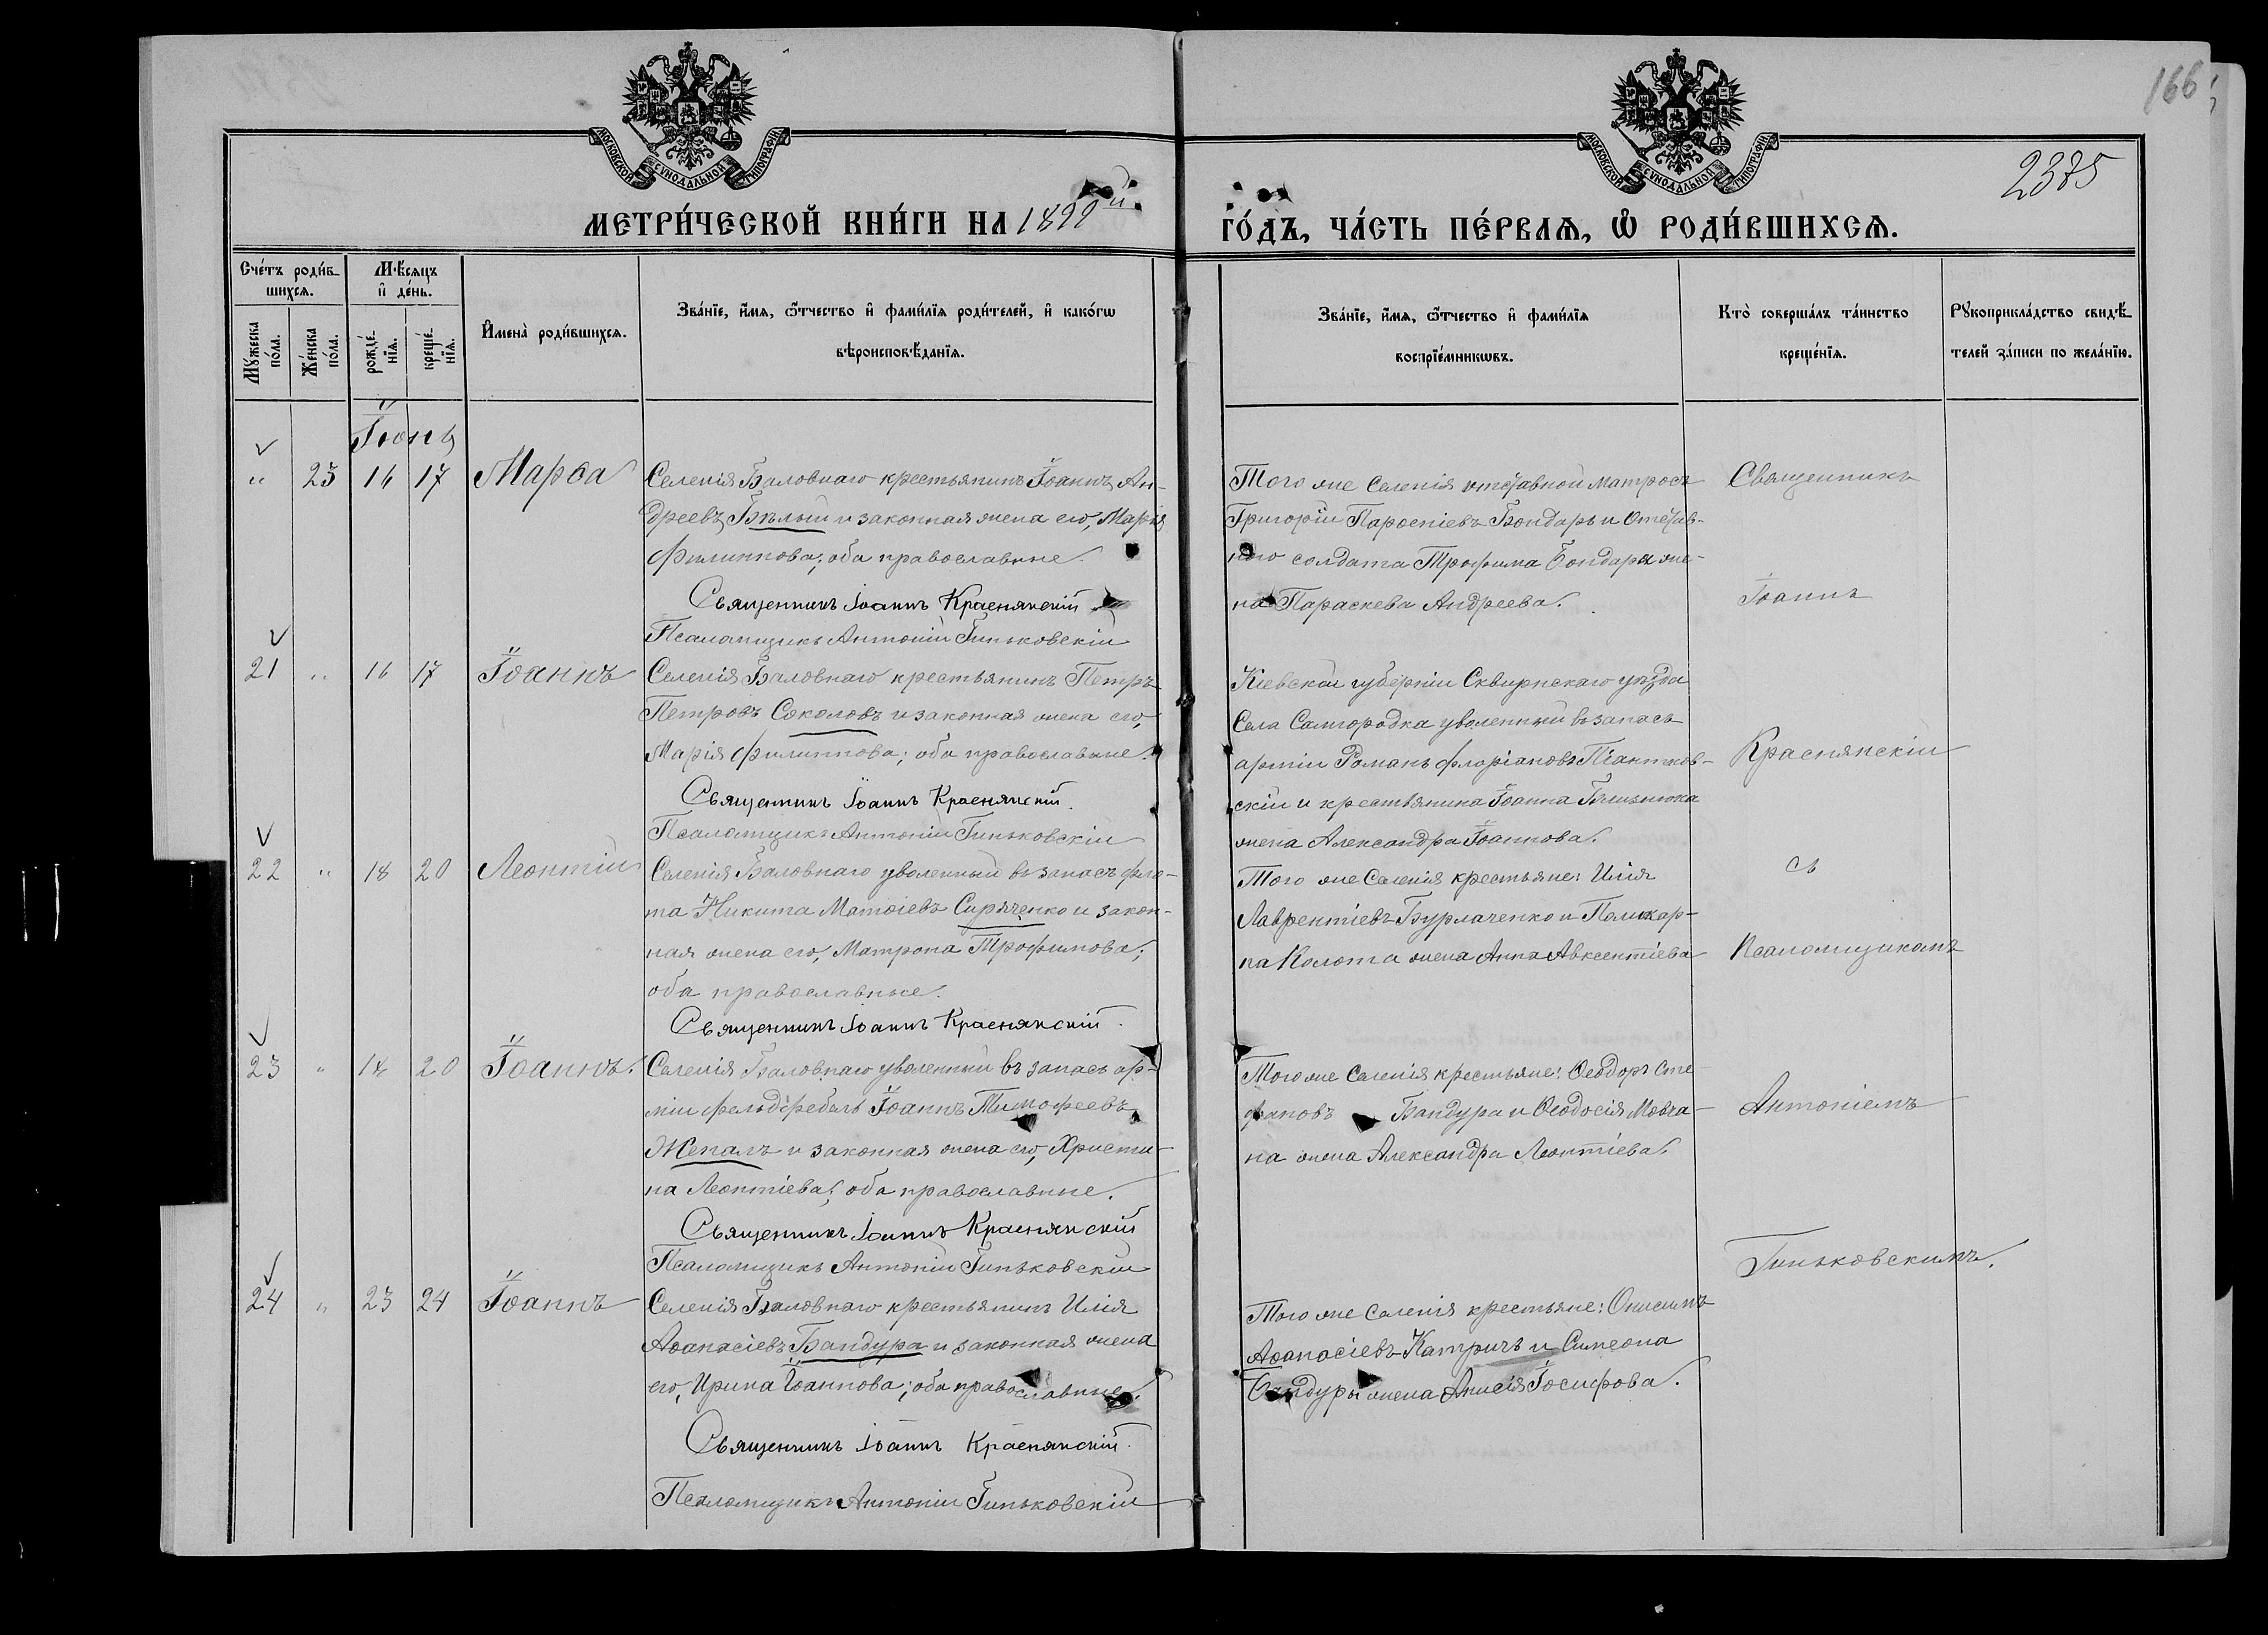 166
2385
МОСКОВСКОЙ СѴНОДАЛЬНОЙ ТИПОГРАФІИ
МОСКОВСКОЙ СѴНОДАЛЬНОЙ ТИПОГРАФІИ
МЕТРИ́ЧЕСКОЙ КНИ́ГИ НА 1899й
ГО́ДЪ, ЧА́СТЬ ПЕ́РВАѦ, Ѽ РОДИ́ВШИХСѦ.
Сче́тъ роди́в-
шихсѧ.
Мѣ́сѧцъ
и҆ де́нь.
Мꙋ́жеска
по́ла.
Же́нска
по́ла.
рожде́-
нїѧ.
креще́-
нїѧ.
И҆мена̀ роди́вшихсѧ.
Зва́нїе, и҆́мѧ, ѻ҆́тчество и҆ фами́лїѧ роди́телей, и҆ како́гѡ
вѣроисповѣ́данїѧ.
Зва́нїе, и҆́мѧ, ѻ҆́тчество и҆ фами́лїѧ
воспрїе́мникѡвъ.
Кто̀ соверша́лъ та́инство
креще́нїѧ.
Рꙋкоприкла́дство свидѣ́-
телей за́писи по жела́нїю.
Іюнь
" 23 16 17 Марѳа
Селенія Баловнаго крестьянинъ Іоаннъ Ан-
дреевъ Бѣлый и законная жена его, Марія
Филиппова; оба православные.
Священникъ Іоаннъ Краснянскій
Псаломщикъ Антоній Гиньковскій
Того же Селенія отставной матросъ
Григорій Парѳеніевъ Бондарь и Отстав-
ного солдата Трофима Бондаря же-
на Параскева Андреева.
21 " 16 17 Іоаннъ
Селенія Баловнаго крестьянинъ Петръ
Петровъ Соколовъ и законная жена его,
Марія Филиппова; оба православные.
Священникъ Іоаннъ Краснянскій.
Псаломщикъ Антоній Гиньковскій
Кіевской губерніи Сквирскаго уѣзда
Села Самгородка уволенный въ запасъ
арміи Романъ Флоріановъ Піантков-
скій и крестьянина Іоанна Близнюка
жена Александра Іоаннова.
22 " 18 20 Леонтій
Селенія Баловнаго уволенный въ запасъ фло-
та Никита Матѳіевъ Сиряченко и закон-
ная жена его, Матрона Трофимова;
оба православные.
Священникъ Іоаннъ Краснянскій.
Того же Селенія крестьяне: Илія
Лаврентіевъ Бурлаченко и Поликар-
па Колота жена Анна Авксентіева
23 " 18 20 Іоаннъ.
Селенія Баловнаго уволенный въ запасъ ар-
міи фельдфебель Іоаннъ Тимофеевъ
Жепалъ и законная жена его, Христи-
на Леонтіева; оба православные.
Священникъ Іоаннъ Краснянскій
Псаломщикъ Антоній Гиньковскій
Того же Селенія крестьяне: Ѳеодоръ Сте-
фановъ Бандура и Ѳеодосія Мовча-
на жена Александра Леонтіева.
24 " 23 24 Іоаннъ
Селенія Баловнаго крестьянинъ Илія
Аѳанасіевъ Бандура и законная жена
его, Ирина Іоаннова; оба православные.
Священникъ Іоаннъ Краснянскій.
Псаломщикъ Антоній Гиньковскій
Того же Селенія крестьяне: Онисимъ
Аѳанасіевъ Катричъ и Симеона
Бандуры жена Анисія Іосифова.
Священникъ
Іоаннъ
Краснянскій
съ
Псаломщикомъ
Антоніемъ
Гиньковскимъ.